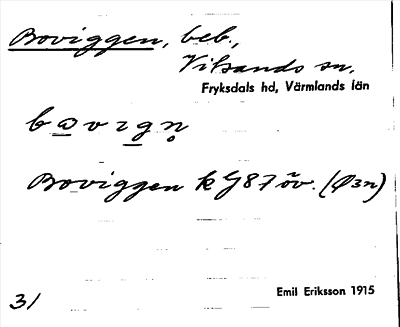 Boviggen, beb.,
Vitsands sn.
Fryksdals hd, Värmlands län
Boviggen k G87 öv. (Ø3n)
Emil Eriksson 1915
31